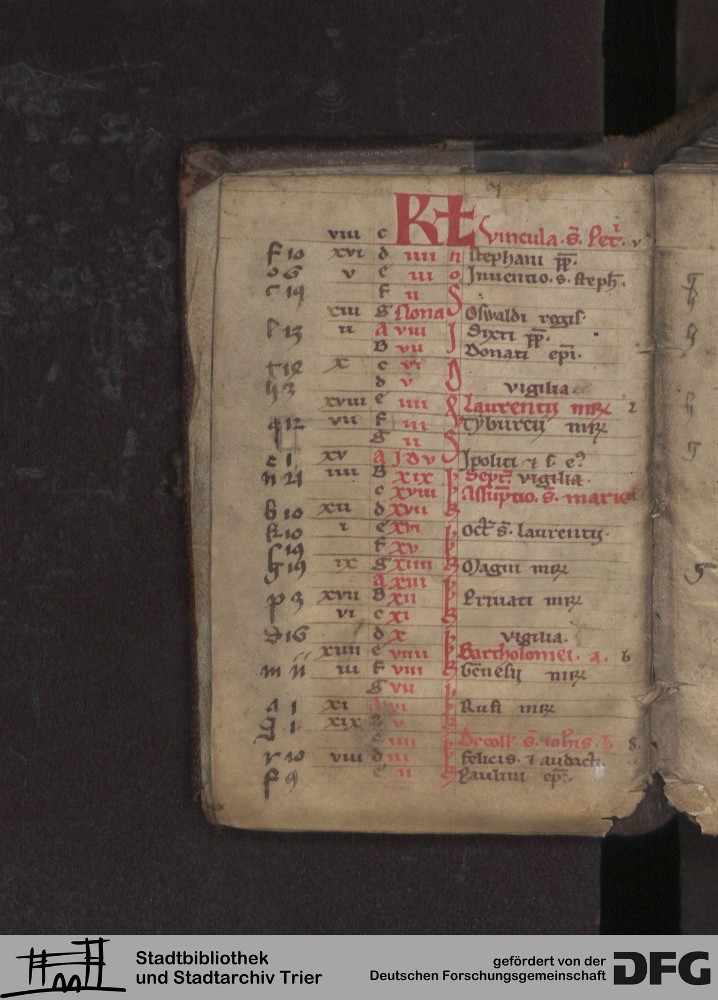 viii c Kł vincula. s. Pet. v
f 10 xvi d iiii n Stephani pp.
o 6 v e iii o Inuentio. s. steph.
c 19 f ii
xiii g Nona Oswaldi regis.
l 13 ii A viii Sixti pp.
B vii Donati epi.
t 12 x c vi
h 3 d v vigilia.
xviii e iiii Laurentij mr̃
q 12 vii f iii Tyburcij mr̃
g ii
e 1 xv A Idus Ipoliti
n 21 iiii B xix vigilia
c xviii Assumptio. s. marie
b 10 xii d xvii
k 10 i e xvi Oct. s. laurentij.
f xv
g 19 ix g xiiii Magni mr̃
A xiii
p 3 xvii B xii Priuati mr̃
vi c xi
D 16 d x vigilia.
xiiii e viiii Bartholomei. a. b
m ii iii f viii Genesij mr̃
g vii
a 1 xi A vi Rufi mr̃
g 1. xix B v
c iiii Decoll. s. iohis. b
r 10 viii d iii Felicis. et audacti.
f 9 e ii Paulini epi.
Stadtbibliothek
und Stadtarchiv Trier
gefördert von der
Deutschen Forschungsgemeinschaft
DFG